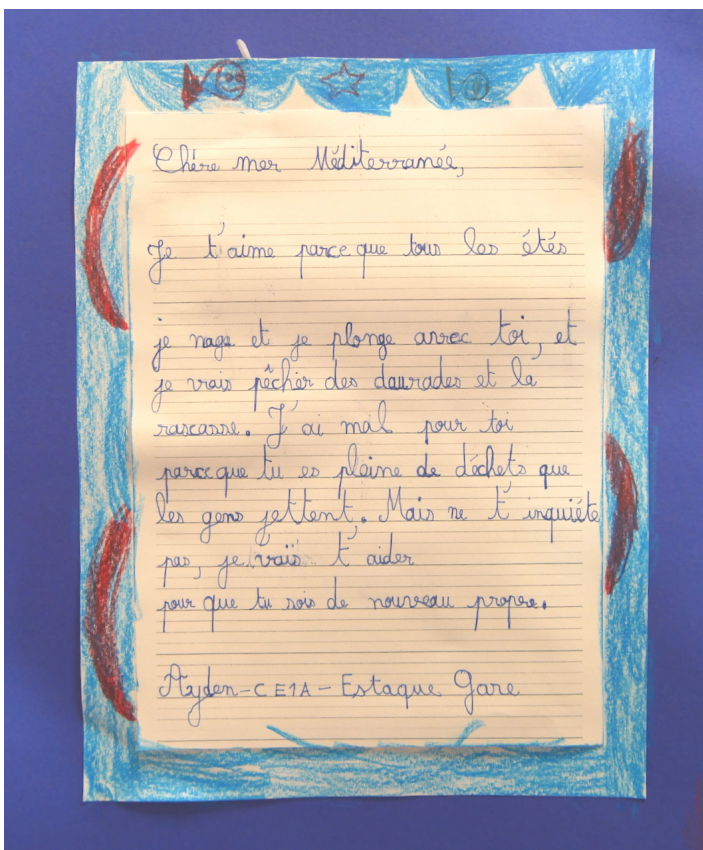 Chère mer Méditerranée,
Je t'aime parce que tous les étés
je nage et je plonge avec toi, et
je vais pêcher des daurades et la
rascasse. J'ai mal pour toi
parce que tu es pleine de déchets que
les gens jettent. Mais ne t'inquiéte
pas, je vais t'aider
pour que tu sois de nouveau propre.
Ayden-CE1A-Estaque Gare